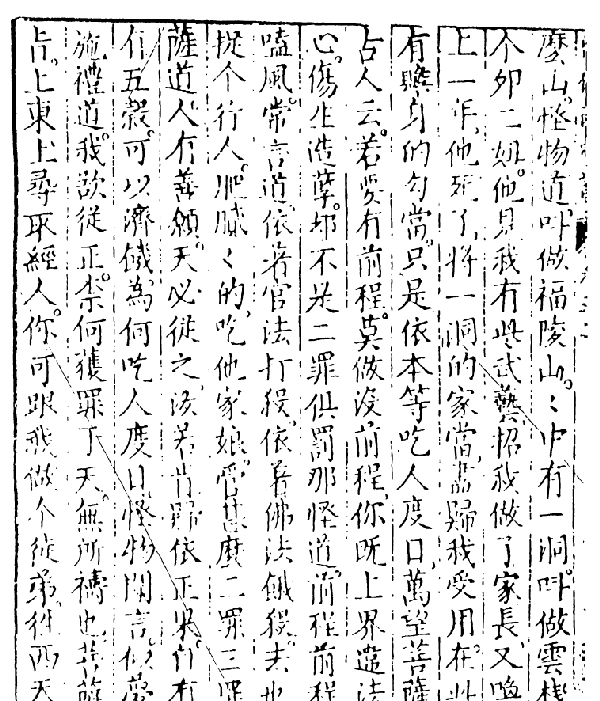 麼山。怪物道。叫做福陵山。〻中有一洞。叫做雲棧
个卯二姐。他見我有些武藝。招我做了家長。又喚
上一年。他死了。將一洞的家當。盡歸我受用。在此
有贍身的勾當。只是依本等吃人度日。萬望菩薩
古人云。若要有前程。莫做沒前程。你既上界違法
心。傷生造孽。却不是二罪俱罰。那怪道。前程前程
嗑風。常言道。依著官法打殺。依著佛法餓殺。去也
捉个行人。肥膩〻的。吃他家娘。管甚麼二罪三罪
薩道。人有善願。天必從之。汝若肯歸依正果。自有
五穀。可以濟饑。為何吃人度日。怪物聞言。似夢
施禮道。我欲從正。奈何獲罪于天。無所禱也。菩薩
旨。上東上尋取經人。你可跟我做个徒弟。往西天